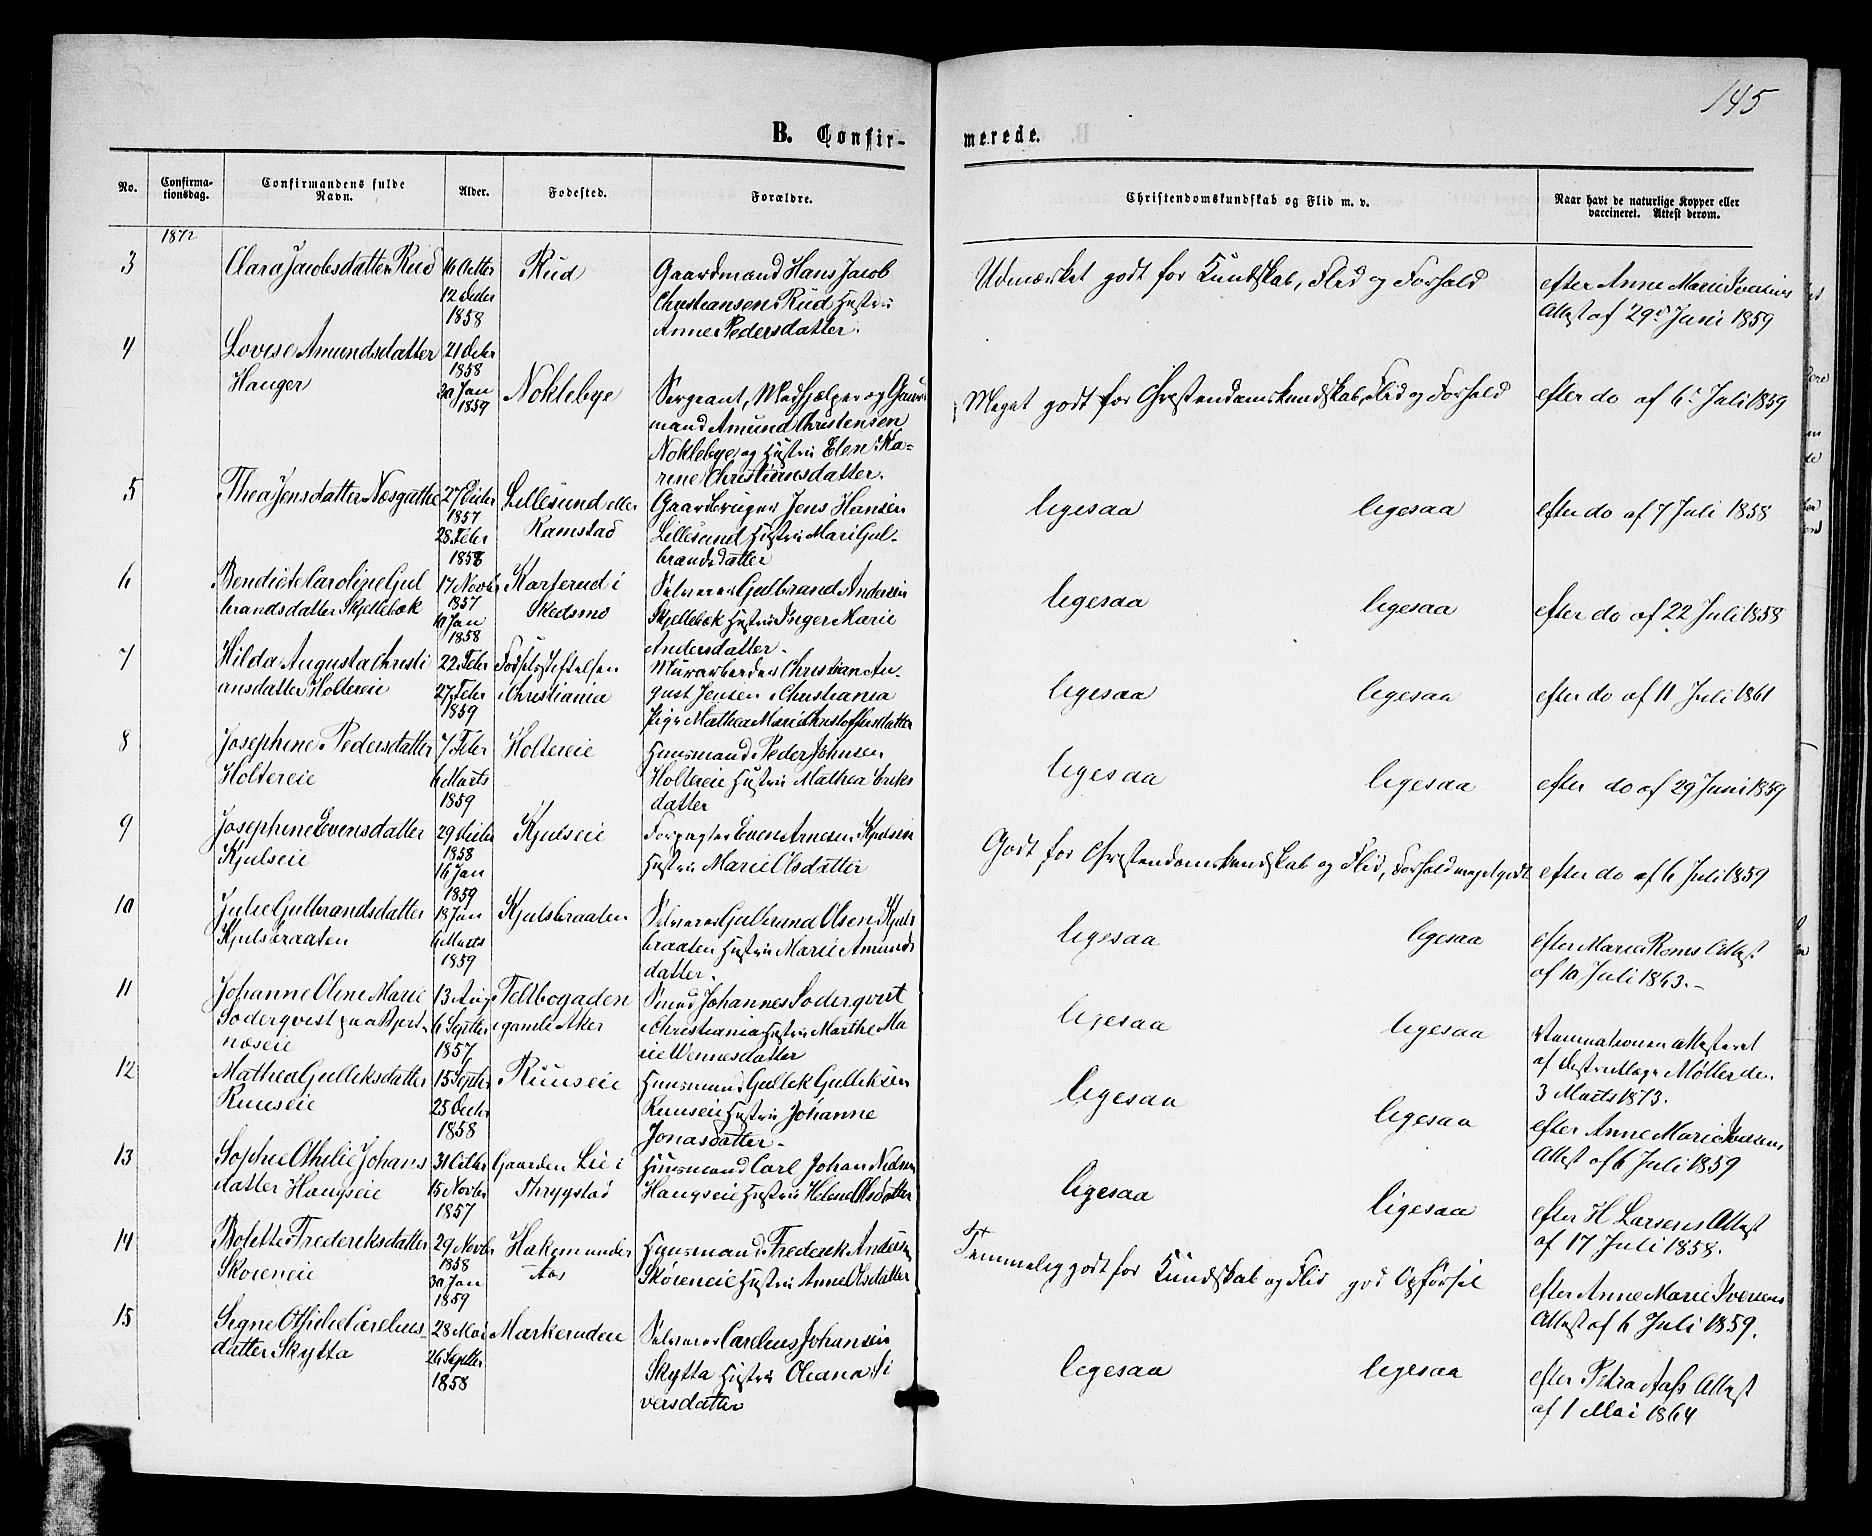 145
B. Confir-
merede.
No.
Confirma-
tionsdag.
Confirmandens fulde
Navn.
Alder.
Fødested.
Forældre.
Christendomskundskab og Flid m. v.
Naar havt de naturlige Kopper eller
vaccineret. Attest derom.
1872
3
Clara Jacobsdatter Rud
16 Octbr
12 Decbr
1858
Rud
Gaardmand Hans Jacob
Christiansen Rud Hustru
Anne Pedersdatter.
Udmærket godt for Kundskab, Flid og Forhold
efter Anne Marie Iversens
Attest af 29 Juni 1859
4
Lovise Amundsdatter
Hauger
21 Decbr
1858
30 Jan
1859
Noklebye
Sergeant, Medhjælper og Gaard
mand Amund Christensen
Noklebye og Hustru Elen Ka-
rine Christiansdatter.
Meget godt for Christendomskundskab, Flid og Forhold
efter do af 6 Juli 1859
5
Thea Jensdatter Næsgutthe
27 Decbr
1857
28 Febr
1858
Lillesund eller
Ramstad
Gaardbruger Jens Hansen
Lillesund Hustru Mari Gul-
brandsdatter
ligesaa ligesaa
efter do af 7 Juli 1858
6
Bendicte Caroline Gul
brandsdatter Skjellebæk
17 Novbr
1857
10 Jan
1858
Karterud i
Skedsmo
Selveier Gulbrand Andersen
Skjellebæk Hustru Inger Marie
Andersdatter.
ligesaa ligesaa
efter do af 22 Juli 1858
7
Hilda Augusta Christi
ansdatter Holtereie
22 Febr
27 Febr
1859
Fødselsstiftelsen
i Christiania
Murarbeider Christian Au-
gust Jensen i Christiania
Pige Mathea Marie Christoffersdatter
ligesaa ligesaa
efter do af 11 Juli 1861
8
Josephine Pedersdatter
Holtereie
7 Febr
6 Marts
1859
Holtereie
Huusmand Peder Johnsen
Holtereie Hustru Mathea Eriks
datter
ligesaa ligesaa
efter do af 29 Juni 1859
9
Josephine Evensdatter
Kjulseie
29 Decbr
1858
16 Jan
1859
Kjulseie
Forpagter Even Arnesen Kjulseie
Hustru Marie Olsdatter
Godt for Christendomskundskab og Flid, Forhold meget godt
efter do af 6 Juli 1859
10
Julie Gulbrandsdatter
Kjulsbraaten
18 Jan
6 Marts
1859
Kjulsbraaten
Selveier Gulbrand Olsen Kjuls
braaten Hustru Marie Amunds
datter.
ligesaa ligesaa
efter Maria Roms Attest
af 10 Juli 1863.-
11
Johanne Oline Marie
Soderqvist paa Bjert-
næseie
13 Aug
6 Septbr
1857
Feltbogaden
i gamle Aker
Smed Johannes Soderqvist
i Christiania Hustru Marthe Ma
rie Wennesdatter
ligesaa ligesaa
Vaccinationen attesteret
af Districtslæge Møller den
3 Marts 1873.
12
Mathea Gulleksdatter
Ruuseie
15 Septbr
25 Decbr
1858
Ruuseie
Huusmand Gullek Gulleksen
Ruuseie Hustru Johanne
Jonasdatter.
ligesaa ligesaa
efter Anne Marie Iversens
Attest af 6 Juli 1859
13
Sophie Othilie Johans
datter Haugseie
31 Octbr
15 Novbr
1857
Gaarden Lie i
Thrygstad
Huusmand Carl Johan Nilsen
Haugseie Hustru Helene Olsdatter
ligesaa ligesaa
efter H Larsens Attest
af 17 Juli 1858.
14
Bolette Frederiksdatter
Skoreneie
29 Novbr
1858
30 Jan
1859
Hakemunder
Aas
Huusmand Frederik Andersen
Skøreneie Hustru Anne Olsdatter
Temmelig godt for Kundskab og Flid god Opførsel
efter Anne Marie Iversens
Attest af 6 Juli 1859.
15
Signe Othilie Carelius-
datter Skytta
28 Mai
26 Septbr
1858
Markerudeie
Selveier Carelius Johansen
Skytta Hustru Oleana Si
versdatter
ligesaa ligesaa
efter Petra Aass Attest
af 1 Mai 1864